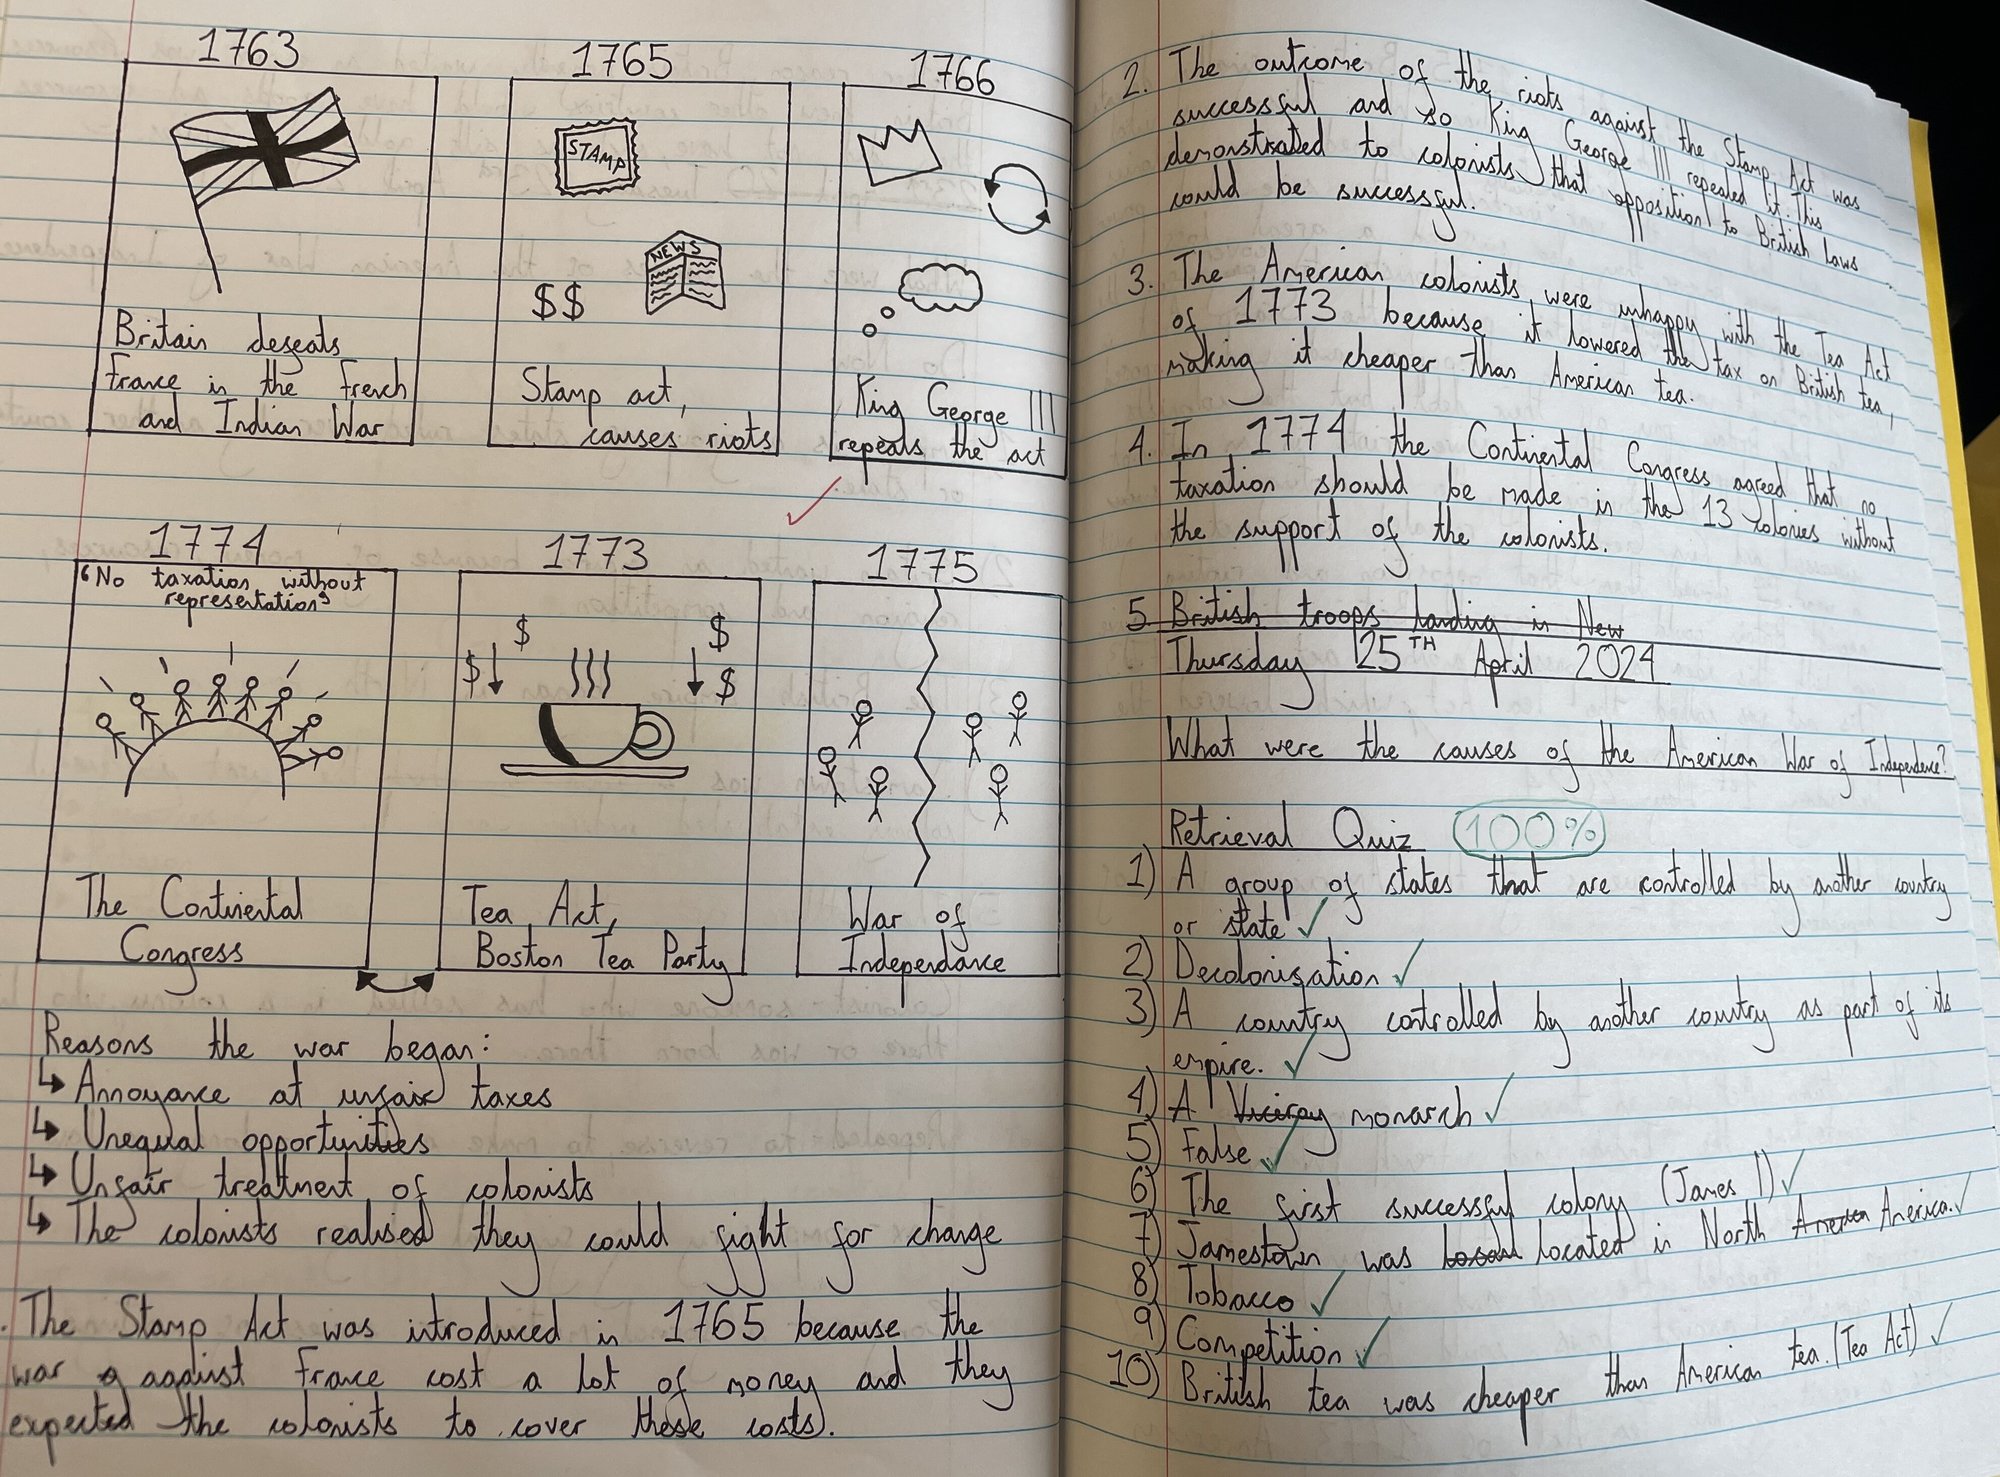 1763
Britain defeats
France in the French
and Indian War
1765
STAMP
NEWS
$$
Stamp act,
causes riots
1766
King George III
repeals the act
1774
'No taxation without
representation'
The Continental
Congress
1773
$ $
$ $
Tea Act,
Boston Tea Party
1775
War of
Independance
Reasons the war began:
↳ Annoyance at unfair taxes
↳ Unequal opportunities
↳ Unfair treatment of colonists
↳ The colonists realised they could fight for change
. The Stamp Act was introduced in 1765 because the
war against France cost a lot of money and they
expected the colonists to cover these costs.
2. The outcome of the riots against the Stamp Act was
successful and so King George III repealed it. This
demonstrated to colonists that opposition to British laws
could be successful.
3. The American colonists were unhappy with the Tea Act
of 1773 because it lowered the tax on British tea,
making it cheaper than American tea.
4. In 1774 the Continental Congress agreed that no
taxation should be made in the 13 colonies without
the support of the colonists.
5 British troops landing in New
Thursday 25TH April 2024
What were the causes of the American War of Independence?
Retrieval Quiz 100%
1) A group of states that are controlled by another country
or state
2) Decolonisation
3) A country controlled by another country as part of its
empire.
4) A Viceroy monarch
5) False
6) The first successful colony (James I)
7) Jamestown was located in North America.
8) Tobacco
9) Competition
10) British tea was cheaper than American tea. (Tea Act)